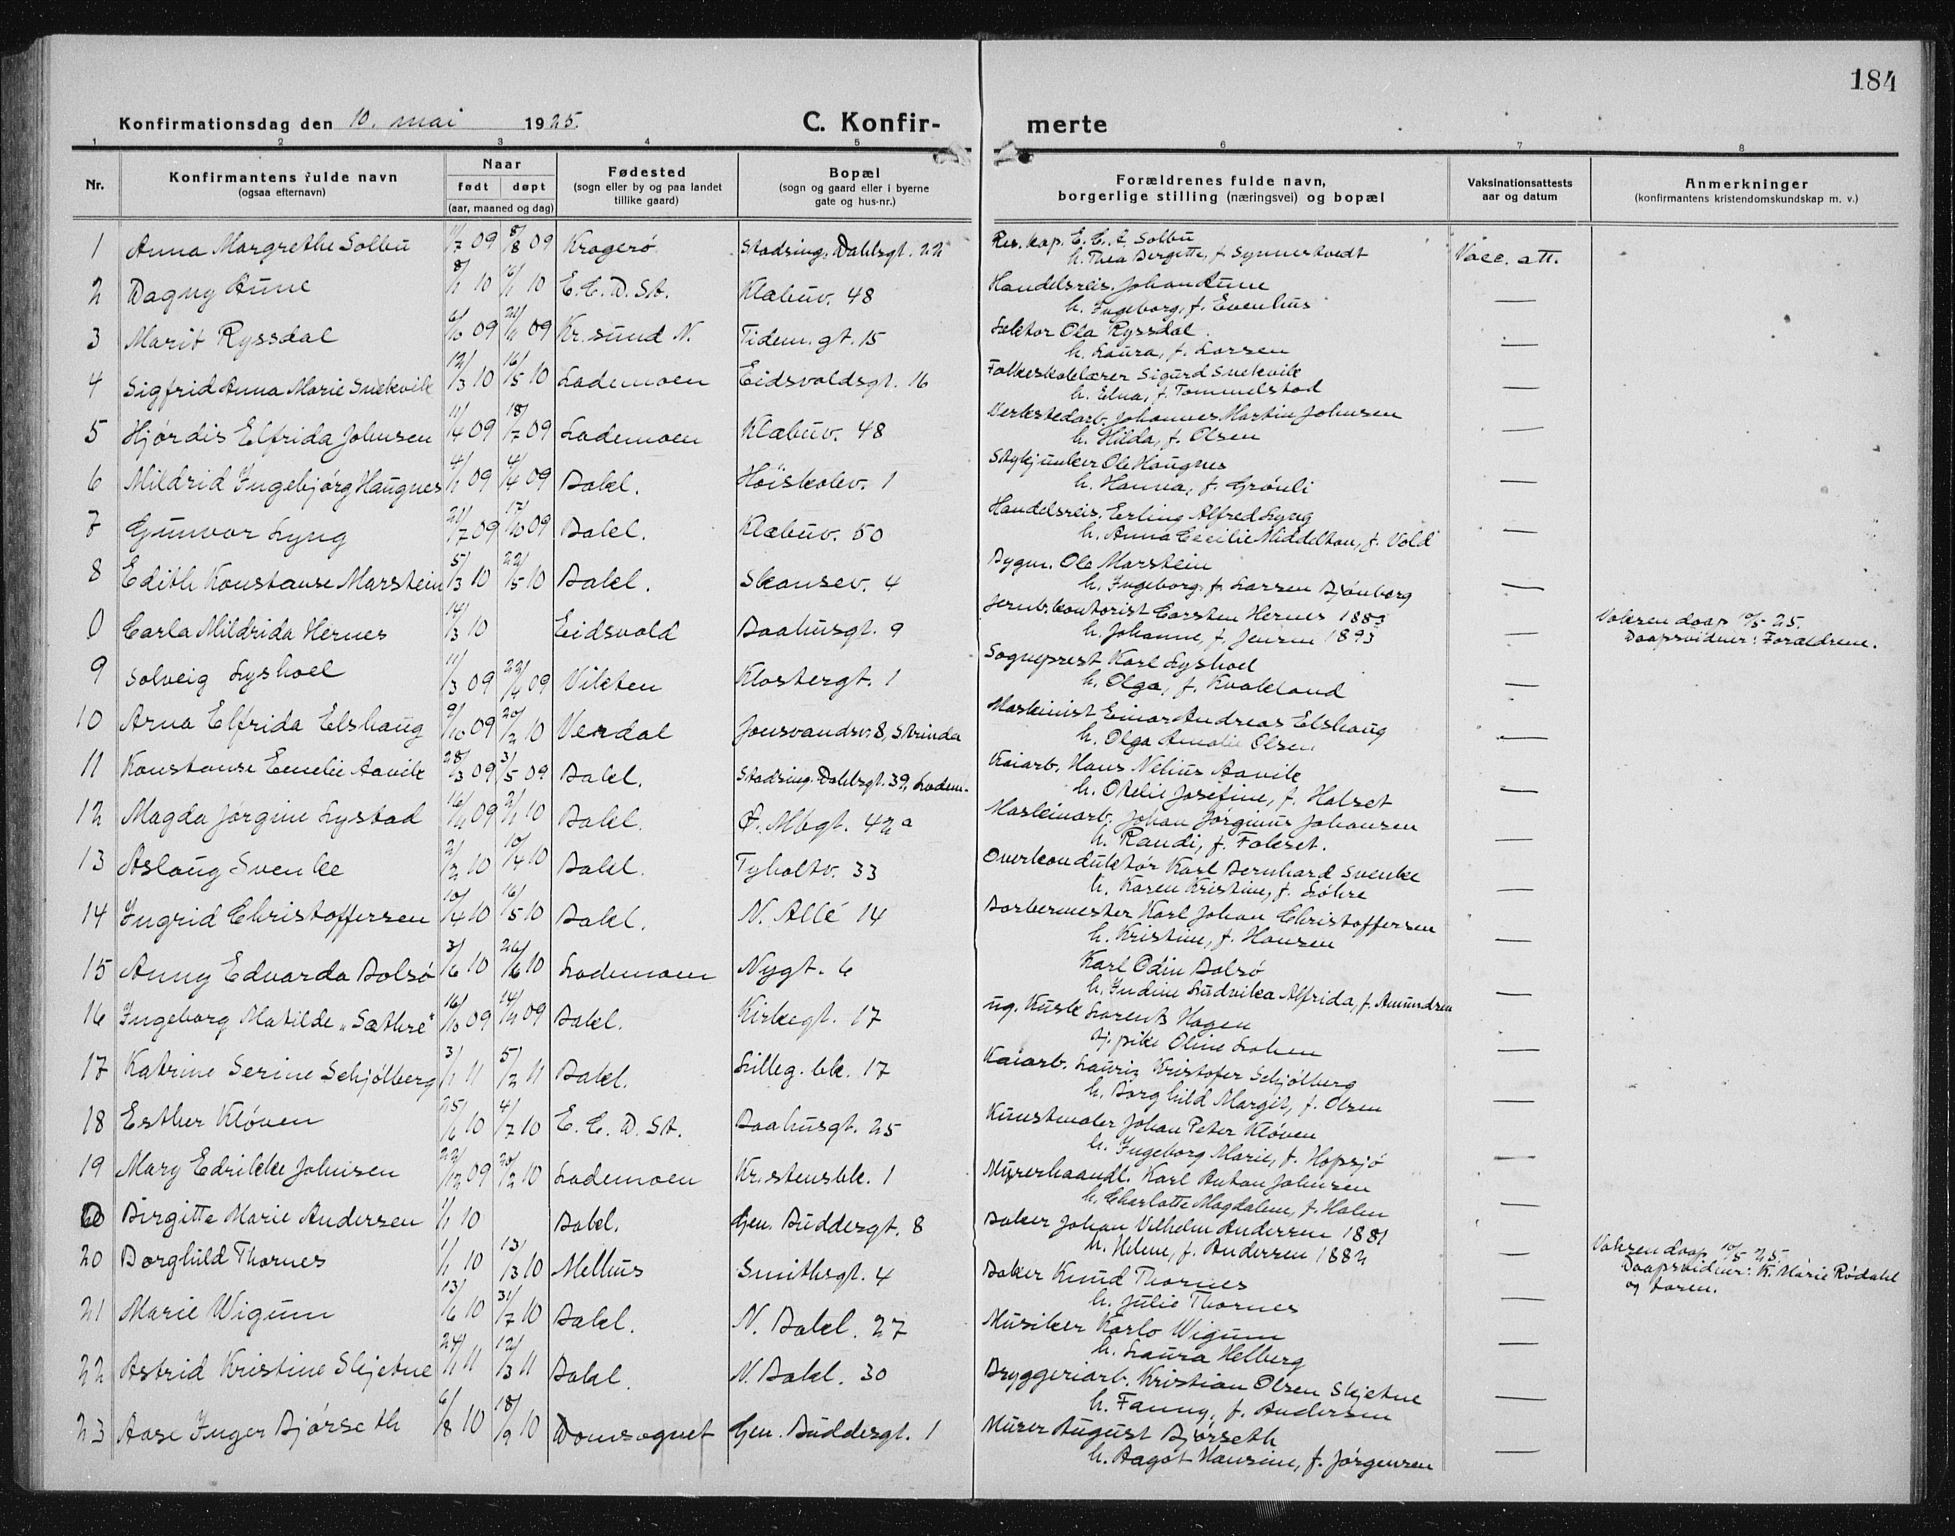 184
Konfirmationsdag den 10. mai 1925.
C. Konfir- merte
1 2 3 4 5 6 7 8
Nr.
Konfirmantens fulde navn
(ogsaa efternavn)
Naar
født døpt
(aar, maaned og dag)
Fødested
(sogn eller by og paa landet
tillike gaard)
Bopæl
(sogn og gaard eller i byerne
gate og hus-nr.)
Forældrenes fulde navn,
borgerlige stilling (næringsvei) og bopæl
Vaksinationsattests
aar og datum
Anmerkninger
(konfirmantens kristendomskundskap m. v.)
1 Anna Margrethe Solbu 11/7 09 8/8 09 Kragerø Stadsing. Dahlsgt. 22 Res. kap. E. C. Solbu Vacc. att.
h. Thea Birgitte, f. Synnestvedt
2 Dagny Aune 8/1 10 10 E. C. D. St. Klæbuv. 48 Handelsreis. Johan Aune —
h. Ingeborg, f. Evenhus
3 Marit Ryssdal 6/10 09 21/11 09 Kr.sund N. Tidem. gt. 15 Lektor Ola Ryssdal. —
h. Laura, f. Larsen
4 Sigfrid Anna Marie Snekvik 12/3 10 16/5 10 Lademoen Eidsvoldsgt. 16 Folkeskolelærer Sigurd Snekvik —
h. Elna, f. Tommelstad
5 Hjørdis Elfrida Johnsen 11/4 09 18/7 09 Lademoen Klæbuv. 48 Verkstedarb. Johannes Martin Johnsen —
h. Hilda, f. Olsen
6 Mildrid Ingebjørg Haugnes 4/1 09 4/4 09 Bakl. Høiskolev. 1 Stykjunker Ole Haugnes —
h. Hanna, f. Grønli
7 Gunvor Lyng 21/7 09 17/10 09 Bakl. Klæbuv. 50 Handelsreis. Erling Alfred Lyng —
h. Anna Cecilie Middelthon, f. Vold
8 Edith Konstanse Marstein 5/3 10 22/5 10 Bakl. Skansev. 4 Bygm. Ole Marstein —
h. Ingeborg, f. Larsen Bjønborg
0 Carla Mildrida Hernes 14/3 10 Eidsvold Baahusgt. 9 Jernb.kontorist Carsten Hernes 1883 — Voksen daap 10/5 25.
h. Johanne, f. Jensen 1893 Daapsvidner: Forældrene.
9 Solveig Lyshoel 11/3 09 22/4 09 Vikten Klostergt. 1 Sogneprest Karl Lyshoel —
h. Olga, f. Kvakland
10 Arna Elfrida Elshaug 9/10 09 20/2 10 Verdal Jonsvandsv. 8, Strinda Maskinist Einar Andreas Elshaug —
h. Olga Amalie Olsen
11 Konstanse Emelie Aavik 28/3 09 3/5 09 Bakl. Stadsing. Dahlsgt. 39, Ladem. Kaiarb. Hans Nelius Aavik —
h. Otelie Josefine, f. Halset
12 Magda Jørgine Lystad 16/11 09 2/1 10 Bakl. Ø. Mbgt. 42a Maskinarb. Johan Jørginus Johansen —
h. Randi, f. Folkset.
13 Aslaug Svenke 2/2 10 10/4 10 Bakl. Tyholtv. 33 Overkonduktør Karl Bernhard Svenke —
h. Karen Kristine, f. Løhre
14 Ingrid Christoffersen 10/4 10 16/5 10 Bakl. N. Allé 14 Barbermester Karl Johan Christoffersen —
h. Kristine, f. Hansen
15 Anny Edvarda Bolsø 3/6 10 26/6 10 Lademoen Nygt. 6 Karl Odin Bolsø —
h. Indine Ludvika Alfrida, f. Amundsen
16 Ingeborg Matilde „Sæthre" 16/10 09 14/11 09 Bakl. Kirkegt. 17 ug. Kusk Lorents Hagen —
tj. pike Oline Lohen
17 Katrine Serine Schjølberg 3/1 11 5/2 11 Bakl. Lilleg. bk. 17 Kaiarb. Lauriz Kristofer Schjølberg —
h. Borghild Margit, f. Olsen
18 Esther Kløven 25/6 10 4/7 10 E. C. D. St. Baahusgt. 25 Kunstmaler Johan Peter Kløven —
h. Ingeborg Marie, f. Hopsjø
19 Mary Edrikke Johnsen 22/12 09 20/2 10 Lademoen Kr.stensbk. 1 Murerhaandl. Karl Anton Johnsen —
h. Charlotte Magdalene, f. Holm
0 Birgitte Marie Andersen 1/1 10 Bakl. Gen. Buddesgt. 8 Baker Johan Vilhelm Andersen 1881 — Voksen daap 10/5 25.
h. Helene, f. Andersen 1882 Daapsvidner: K. Marie Rødahl
og faren.
20 Borghild Thornes 1/1 10 13/3 10 Melhus Smithsgt. 4 Baker Knud Thornes —
h. Julie Thornes
21 Marie Wigum 13/6 10 31/7 10 Bakl. N. Bakl. 27 Musiker Karlo Wigum —
h. Laura Helberg
22 Astrid Kristine Skjetne 24/1 11 12/3 11 Bakl. N. Bakl. 30 Bryggeriarb. Kristian Olsen Skjetne —
h. Fanny, f. Andersen
23 Aase Inger Bjørseth 6/8 10 18/9 10 Domsognet Gen. Buddesgt. 1 Murer August Bjørseth —
h. Aagot Hansine, f. Jørgensen